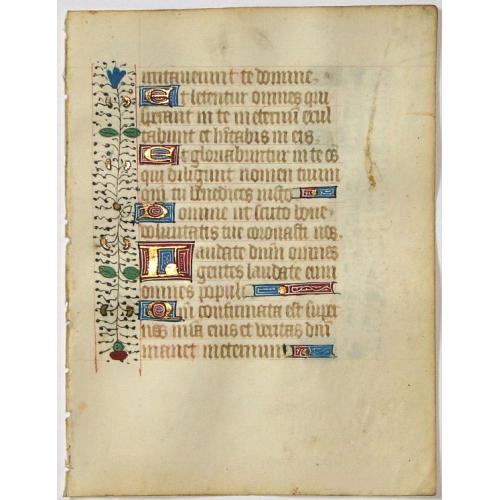 uitaverunt te domine.
Et letentur omnes qui
sperant in te in eternum exul
tabunt et habitabis in eis.
Et gloriabuntur in te oēs
qui diligunt nomen tuum
qm̄ tu benedices iusto
Domine ut scuto bone
voluntatis tue coronasti nos.
Laudate dnm̄ omnes
gentes laudate eum
omnes populi
Qm̄ confirmata est super
nos mīa eius et veritas dni
manet in eternum